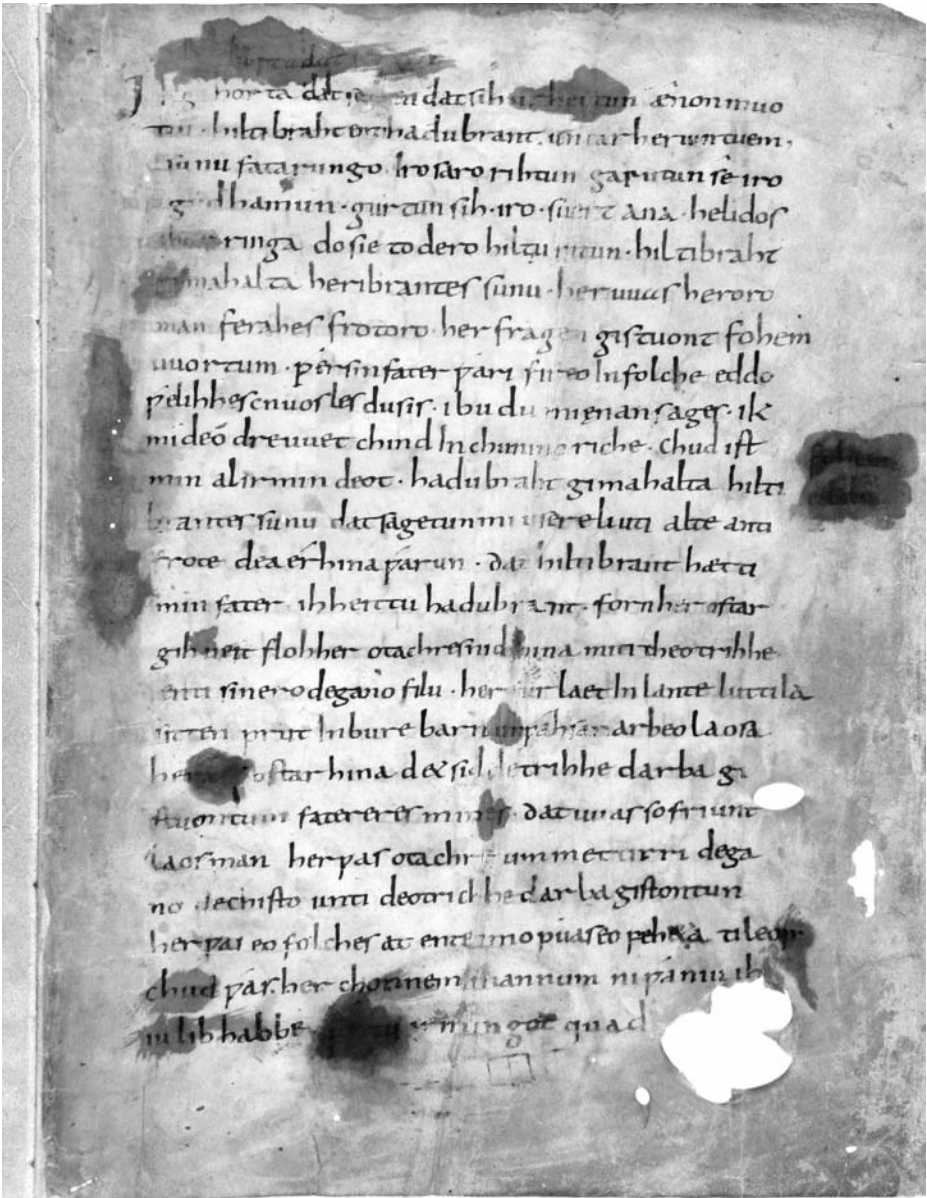 gihorta dat dat sih ænon muo
tin · hiltibraht enti hadubrant · untar heriun tuem ·
sunu fatarungo · Iro saro rihtun garutun sé iro
gudhamun · gurtun sih · iro · suert ana · helidos
ringa do sie to dero hiltu ritun · hiltibraht
gimahalta heribrantes sunu · her uuas heroro
man ferahes frotoro · her fragen gistuont fohem
uuortum · ƿer sin fater ƿari fireo In folche eddo
ƿelihhes cnuosles du sis · ibu du mi ęnan sages · ik
mi deo dre uuet chind In chunincriche · chud ist
min al irmin deot · hadubraht gimahalta hilti
brantes sunu dat sagetun mi usere liuti alte anti
frote dea érhina ƿarun · dat hiltibrant hætti
min fater · ih heittu hadubrant · forn her ostar
gihueit floh her otachres nid hina miti theotrihhe
enti sinero degano filu · her fur laet In lante luttila
sitten prut In bure barn unƿahsan arbeo laosa
ostar hina d& sid detrihhe darba gi
stuontum fatereres mines · dat uuas so friunt
laos man her ƿas otachre ummet tirri dega
no dechisto unti deotrichhe darba gistontun
her ƿas eo folches at ente imo ƿuas eo ƿeh&a ti leop
chud ƿas her chonnem mannum ni ƿaniu ih
iu lib habbe min got quad